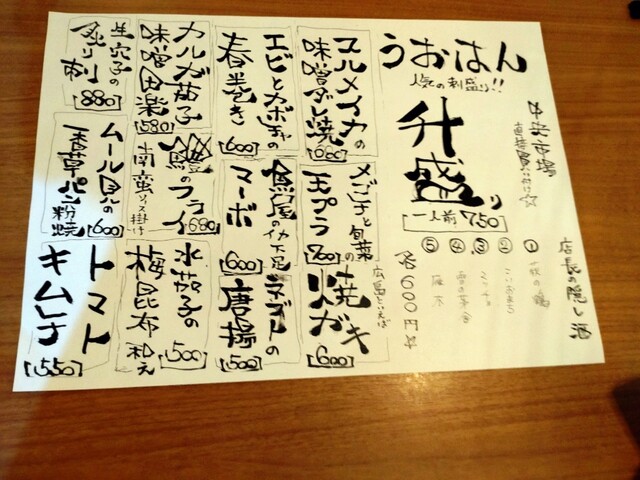 うおはん
人気の刺盛り!!
中央市場
直接買い付け☆
升盛り
一人前 750
店長の隠し酒
①
②
③
④
⑤
各600円
スルメイカの
味噌ダレ焼
680
メゴチと旬菜の
天プラ
700
広島といえば
焼ガキ
600
エビとカボチャの
春巻き
600
魚屋のイカ下足
マーボ
600
唐揚
500
カルガ茄子
味噌田楽
580
鱧のフライ
南蛮ソース掛け
680
水茄子の
梅昆布和え
500
生穴子の
炙り刺
880
ムール貝の
香草パン粉焼
600
トマト
キムチ
550